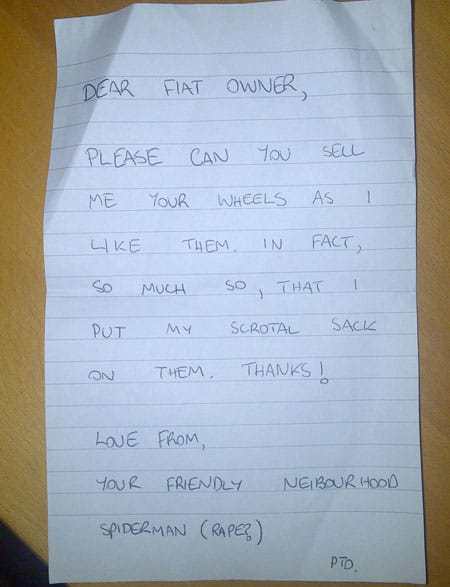 DEAR FIAT OWNER,
PLEASE CAN YOU SELL
ME YOUR WHEELS AS I
LIKE THEM. IN FACT,
SO MUCH SO, THAT I
PUT MY SCROTAL SACK
ON THEM. THANKS!
LOVE FROM,
YOUR FRIENDLY NEIBOURHOOD
SPIDERMAN (RAPE?)
PTO.